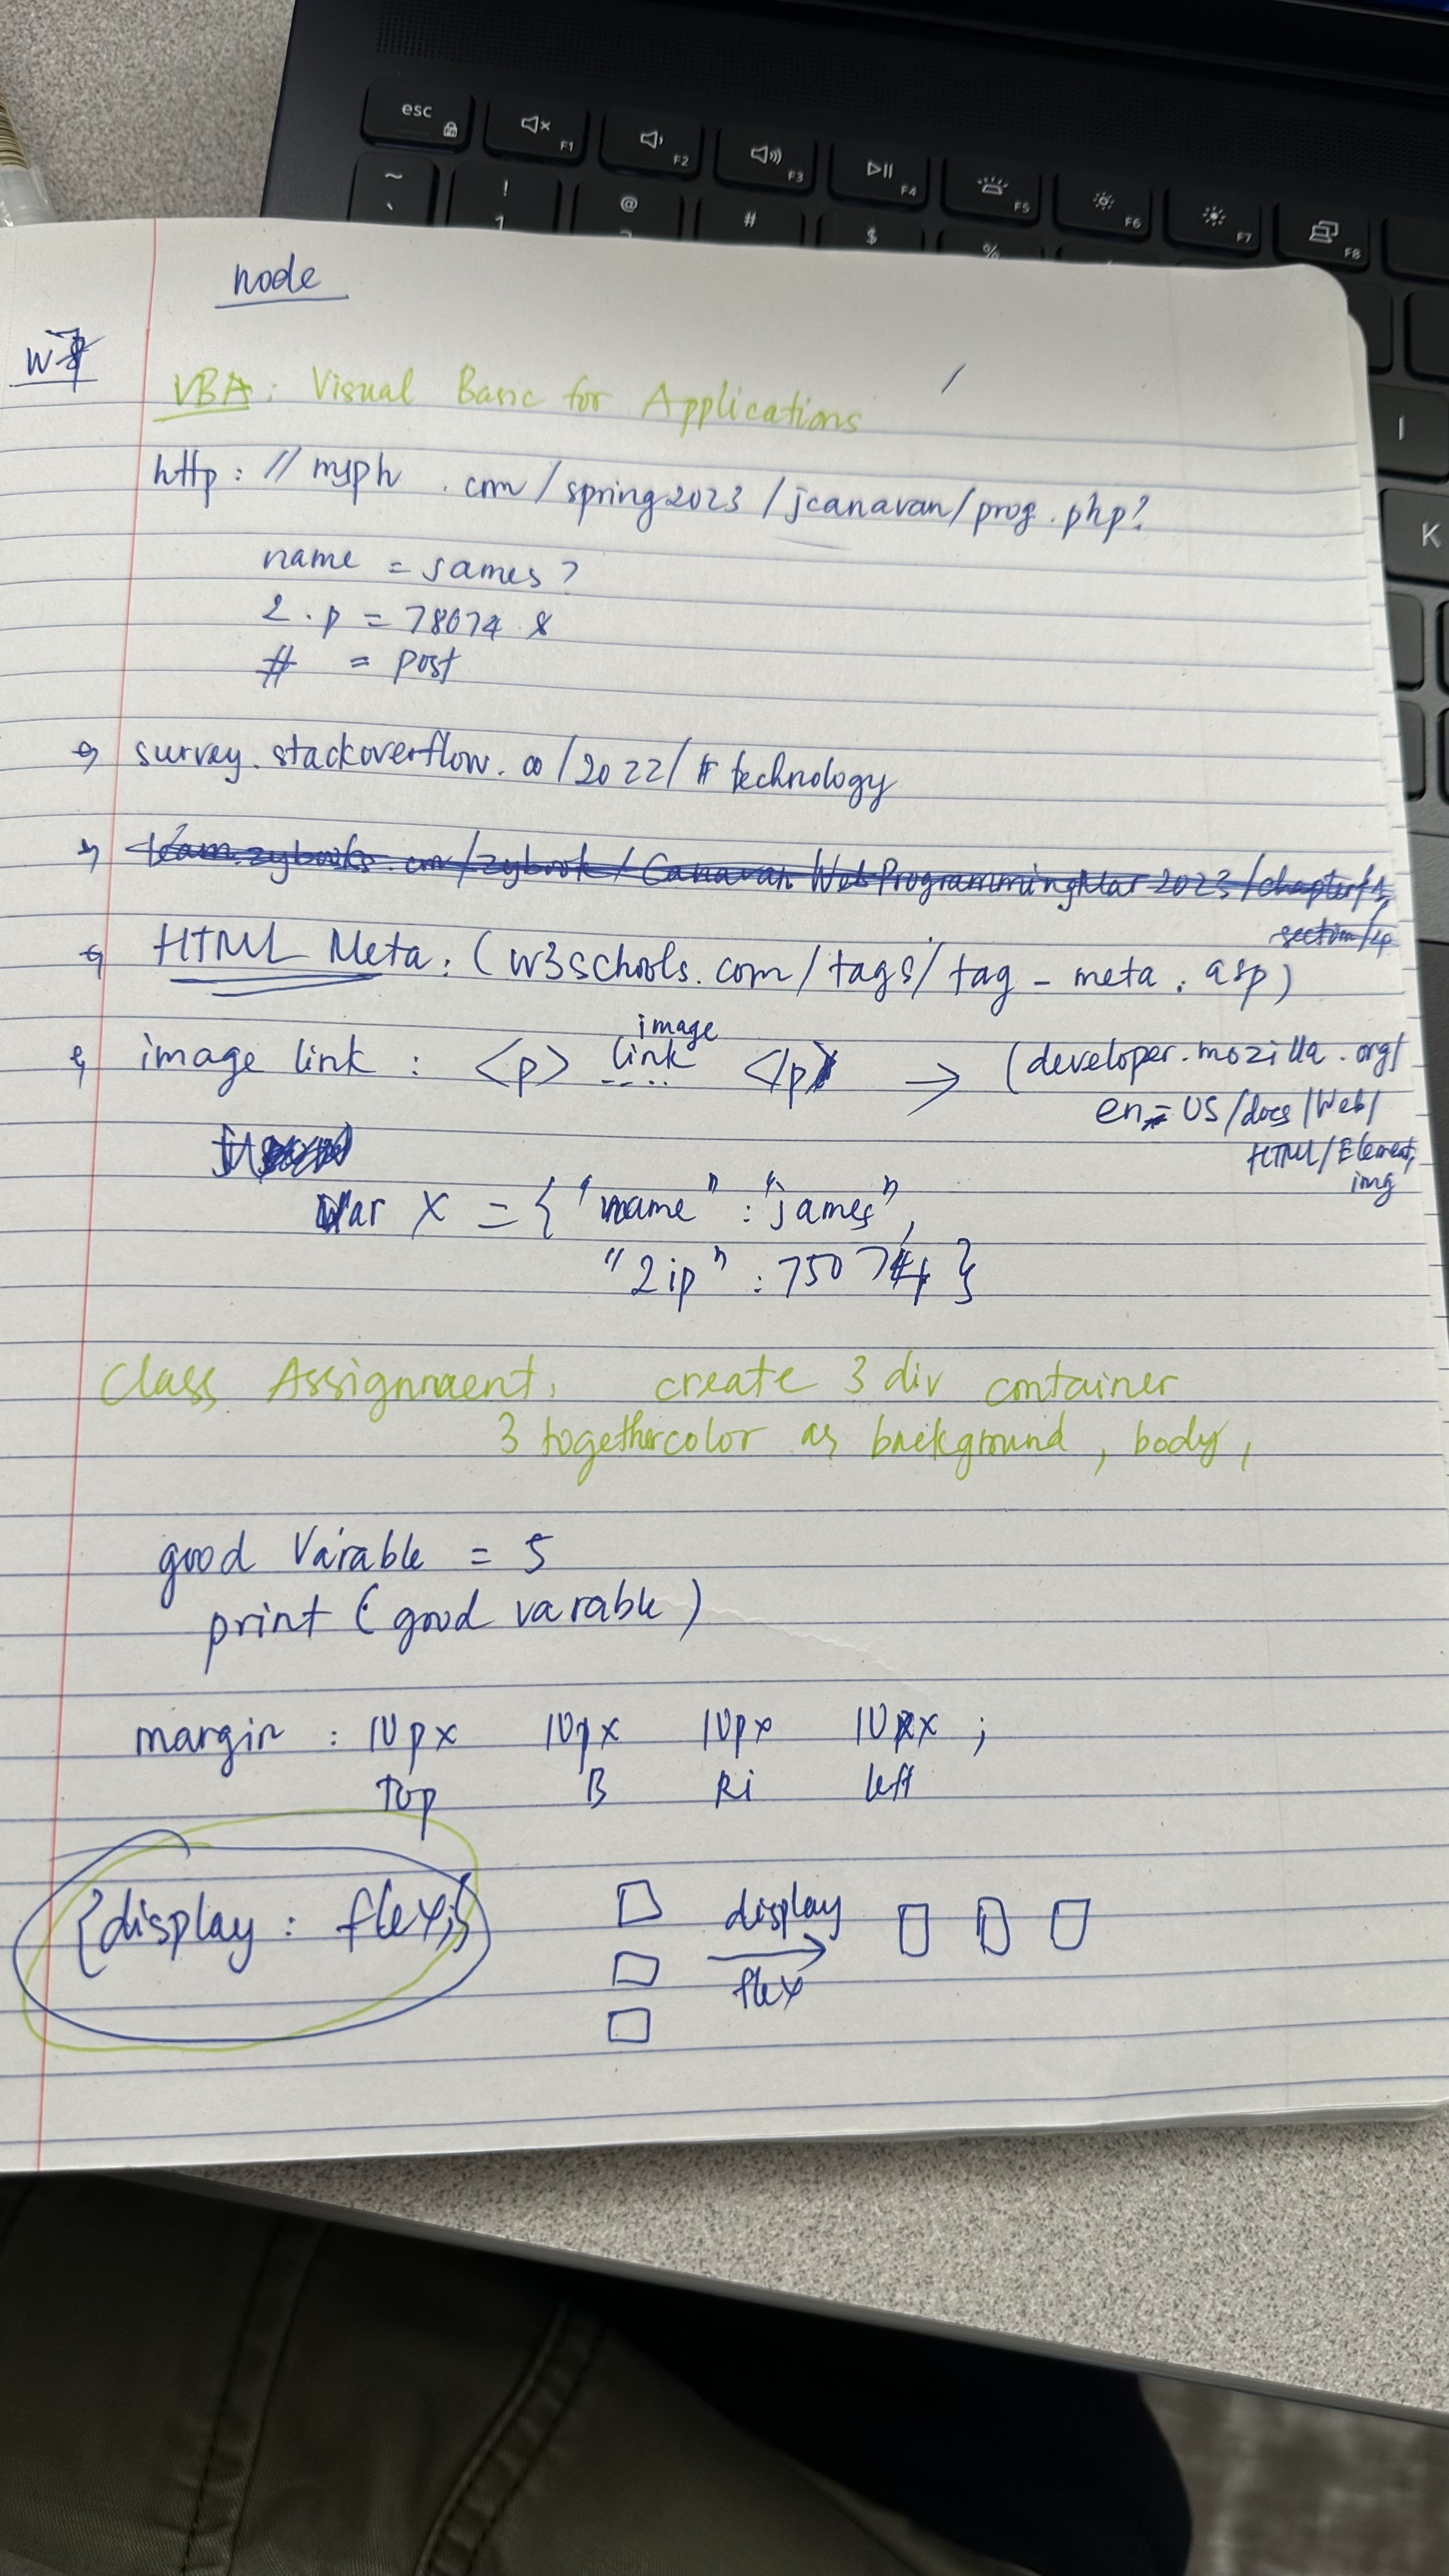 esc
F1
F2
F3
F4
F5
F6
F7
F8
~ ! @ # $ %
` 1
K
node
VBA: Visual Basic for Applications
http://myph.com/spring2023/jcanavan/prog.php?
name = James?
2.p = 78074 &
# = post
survey.stackoverflow.co/2022/#technology
learn.zybooks.com/zybook/CanavanWebProgrammingMar2023/chapter/1
section/4
HTML Meta: (w3schools.com/tags/tag_meta.asp)
image
image link : <p> link </p> → (developer.mozilla.org/
en-US/docs/Web/
HTML/Element,
img
var X = {"name" : "james",
"zip" : 75074 }
Class Assignmaent: create 3 div container
3 together color as background, body,
good Variable = 5
print (good varable)
margin : 10px 10px 10px 10px ;
Top B Ri left
{display : flex;}
display
flex